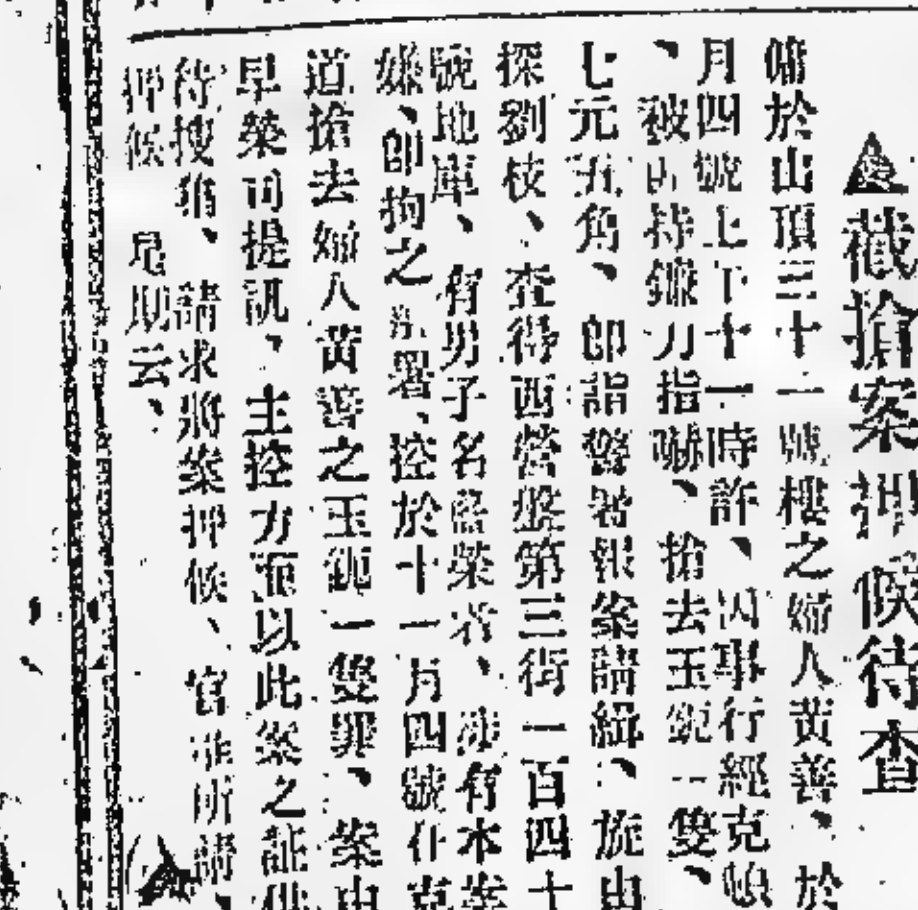 截搶案押候待查
傭於山頂三十一號樓之婦人黃善、於
月四號上下十一時許、因事行經克頓
、被匪持鐮刀指嚇、搶去玉鈪一隻、
七元五角、卽詣警署報案請緝、旋由
探劉枝、查得西營盤第三街一百四十
號地庫、有男子名藍榮者、涉有本案
嫌、卽拘之署、控於十一月四號在克
道搶去婦人黃善之玉鈪一隻罪、案由
早藥司提訊、主控方面以此案之証供
待搜、請求將案押候、官准所請、
押候 
期云、